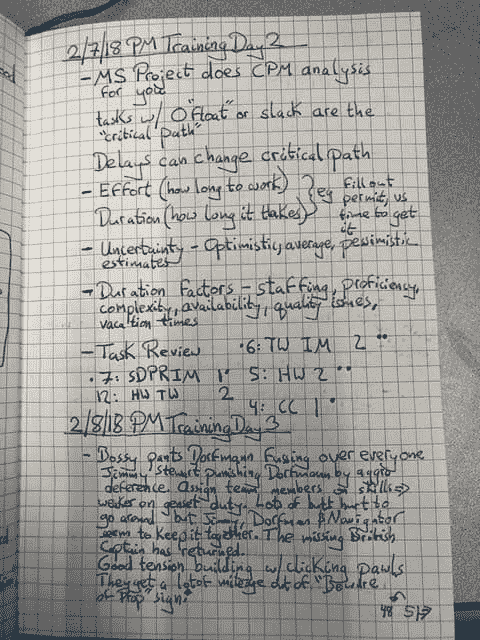 2/7/18 PM Training Day 2
- MS Project does CPM analysis
for you
tasks w/ 0 "float" or slack are the
"critical path"
Delays can change critical path
- Effort (how long to work) } eg Fill out
permit, vs
Duration (how long it takes) time to get
it
- Uncertainty - Optimistic, average, pessimistic
estimates
- Duration Factors - staffing, proficiency,
complexity, availability, quality issues,
vacation times
- Task Review • 6: TW IM 2 ••
• 7: SDPRIM 1 • 5: HW 2 ••
12: HW TW 2
4: CC 1 •
2/8/18 PM Training Day 3
- Bossy pants Dorfmann fussing over everyone
Jimmy Stewart punishing Dorfmann by aggro
deference. Assign team members on skills →
weaker on genset duty. Lots of butt hurt to
go around but Jimmy, Dorfman & Navigator
seem to keep it together. The missing British
Captain has returned.
Good tension building w/ clicking pawls
They get a lot of mileage out of "Beware
of Prop" sign.
48